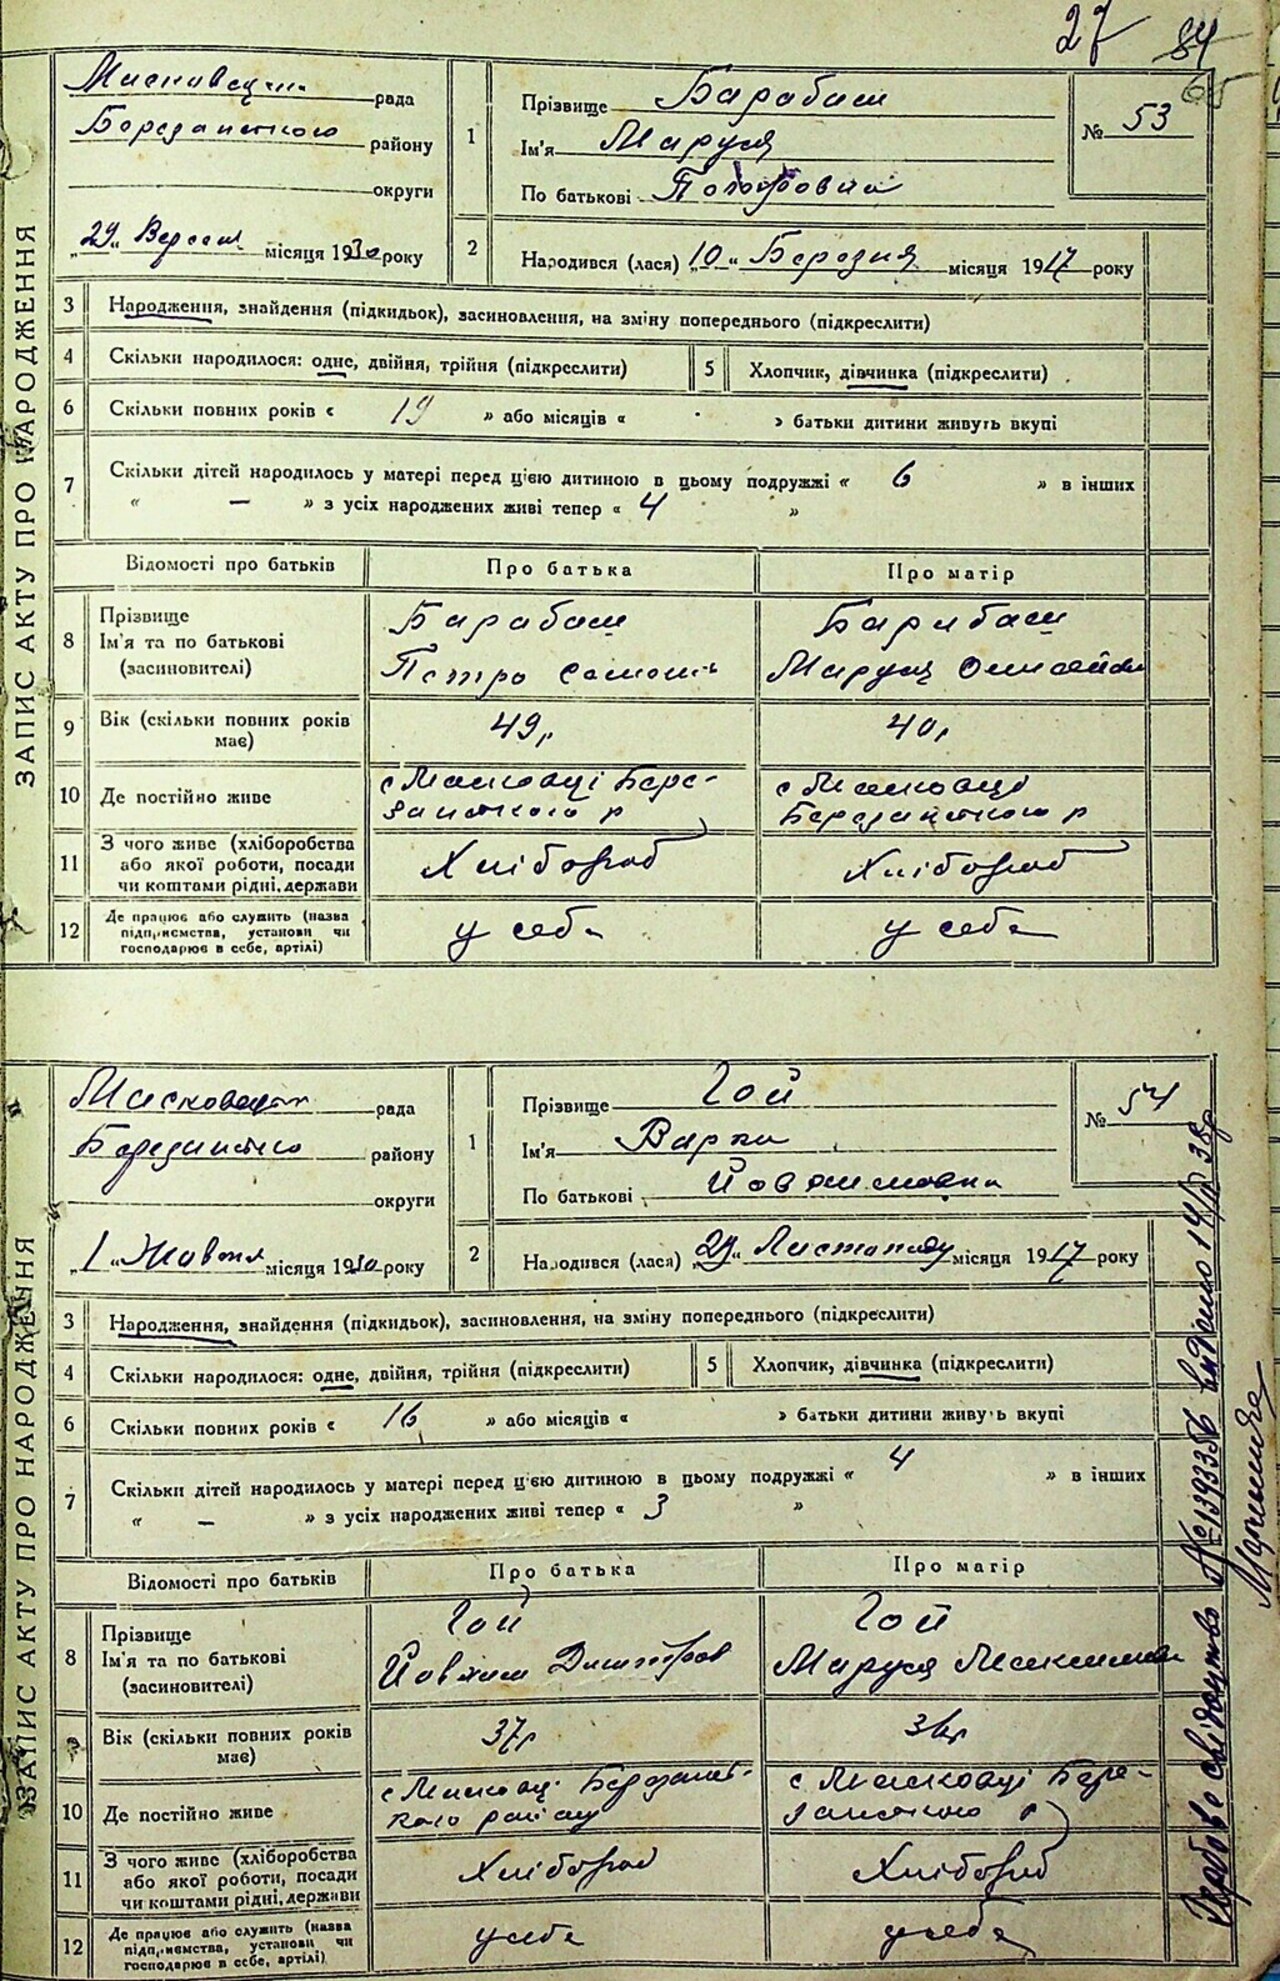 27 84
65
ЗАПИС АКТУ ПРО НАРОДЖЕННЯ
рада
Березанського району
округи
„29“ Вересня місяця 1930 року
1
Прізвище Барабаш
Ім'я Маруся
По батькові Петровна
№ 53
2
Народився (лася) „10“ Березня місяця 1917 року
3 Народження, знайдення (підкидьок), засиновлення, на зміну попереднього (підкреслити)
4 Скільки народилося: одне, двійня, трійня (підкреслити) 5 Хлопчик, дівчинка (підкреслити)
6 Скільки повних років « 19 » або місяців « » батьки дитини живуть вкупі
7 Скільки дітей народилось у матері перед цією дитиною в цьому подружжі « 6 » в інших
« — » з усіх народжених живі тепер « 4 »
Відомості про батьків Про батька Про матір
8 Прізвище
Ім'я та по батькові
(засиновителі)
Барабаш
Петро
Барабаш
Маруся
9 Вік (скільки повних років
має)
49 р
40 р
10 Де постійно живе
с Масковці Бере-
занського р
с Масковці
Березанського р
11 З чого живе (хліборобства
або якої роботи, посади
чи коштами рідні, держави
Хлібороб
Хлібороб
12 Де працює або служить (назва
підприємства, установи чи
господарює в себе, артілі)
у себе
у себе
ЗАПИС АКТУ ПРО НАРОДЖЕННЯ
рада
району
округи
„1“ Жовтня місяця 1930 року
1
Прізвище Гой
Ім'я Варка
По батькові Йовхимовна
№ 54
2
Народився (лася) „29“ Листопаду місяця 1917 року
3 Народження, знайдення (підкидьок), засиновлення, на зміну попереднього (підкреслити)
4 Скільки народилося: одне, двійня, трійня (підкреслити) 5 Хлопчик, дівчинка (підкреслити)
6 Скільки повних років « 16 » або місяців « » батьки дитини живуть вкупі
7 Скільки дітей народилось у матері перед цією дитиною в цьому подружжі « 4 » в інших
« — » з усіх народжених живі тепер « 3 »
Відомості про батьків Про батька Про матір
8 Прізвище
Ім'я та по батькові
(засиновителі)
Гой
Йовхим Дмитров
Гой
Маруся Максимовн
9 Вік (скільки повних років
має)
37 р
36 р
10 Де постійно живе
с Масковці Березансь-
кого району
с Масковці Бере-
занського р
11 З чого живе (хліборобства
або якої роботи, посади
чи коштами рідні, держави
Хлібороб
Хлібороб
12 Де працює або служить (назва
підприємства, установи чи
господарює в себе, артілі)
у себе
у себе
свідоцтво № 139335б видано 38р